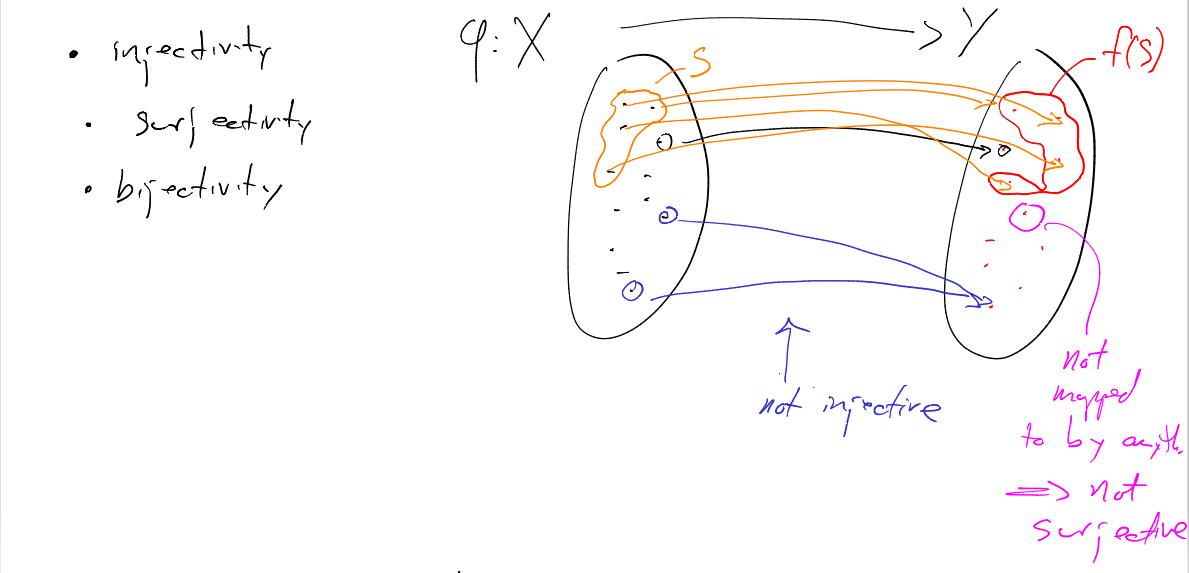 • injectivity
• surjectivity
• bijectivity
φ: X → Y
S
f(S)
not injective
not
mapped
to by anyth.
⇒ not
surjective